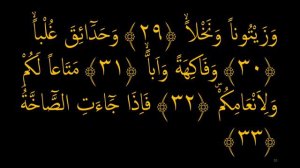 وَزَيْتُوناً وَنَخْلاً ﴿٢٩﴾ وَحَدَٓائِقَ غُلْباً
﴿٣٠﴾ وَفَاكِهَةً وَاَباًّ ﴿٣١﴾ مَتَاعاً لَكُمْ
وَلِاَنْعَامِكُمْ ﴿٣٢﴾ فَاِذَا جَٓاءَتِ الصَّٓاخَّةُ
﴿٣٣﴾